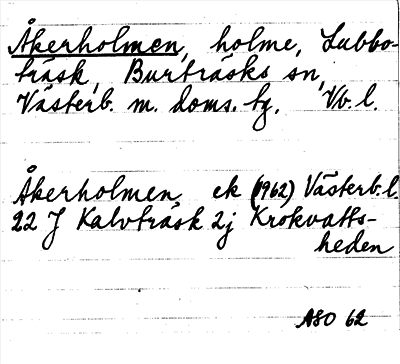 Åkerholmen, holme, Lubbo-
träsk, Burträsks sn,
Västerb. m. doms. tg. Vb. l.
Åkerholmen, ek (1962) Västerb. l.
22 J Kalvträsk 2j Krokvatts-
heden
ASO 62